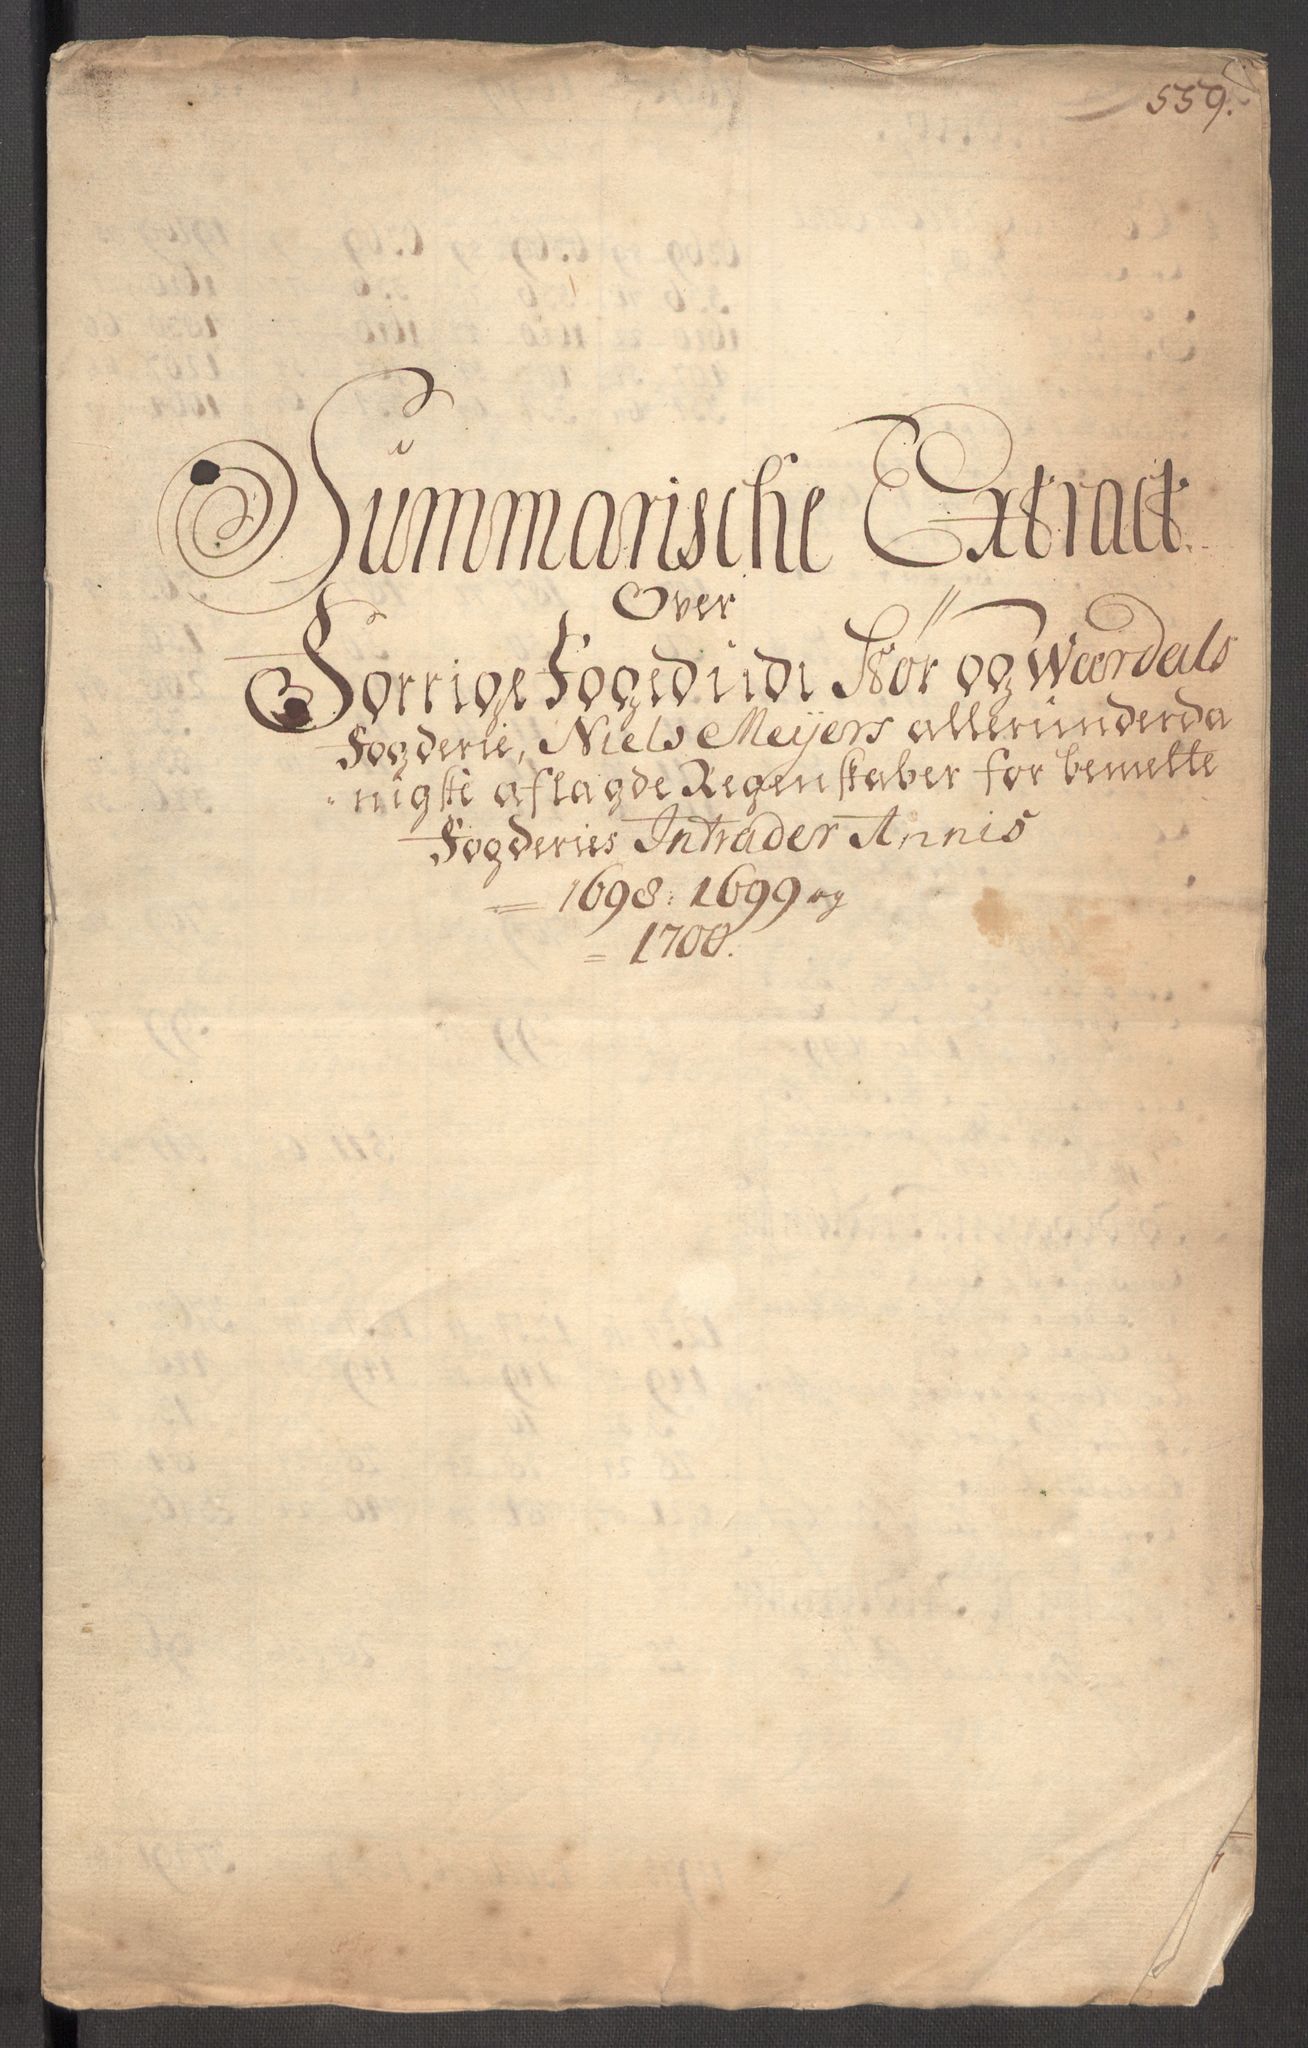 559.
Summarische Extract.
Over
Forrige Foged udi Stör og Wærdals
Fogderie, Niels Meÿers allerunderda
nigste aflagde Regenskaber for bemelte
Fogderies Intrader Annis
1698: 1699 og
1700.